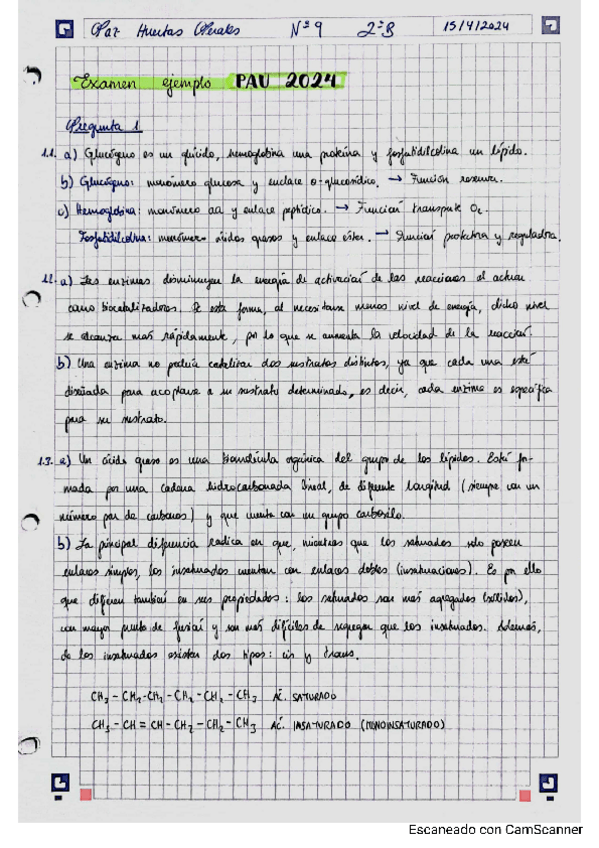 Paz Huertas Nº 9 2ºB 15/4/2024
Examen ejemplo PAU 2024
Pregunta 1
1.1. a) Glucógeno es un glúcido, hemoglobina una proteína y fosfatidilcolina un lípido.
b) Glucógeno: monómero glucosa y enlace o-glucosídico. → Función reserva.
c) Hemoglobina: monómero aa y enlace peptídico. → Función transporte O₂.
Fosfatidilcolina: monómero ácidos grasos y enlace éster. → Función protectora y reguladora.
1.2. a) Las enzimas disminuyen la energía de activación de las reacciones al actuar
como biocatalizadores. De esta forma, al necesitarse menos nivel de energía, dicho nivel
se alcanza más rápidamente, por lo que se aumenta la velocidad de la reacción.
b) Una enzima no podría catalizar dos sustratos distintos, ya que cada una está
diseñada para acoplarse a su sustrato determinado, es decir, cada enzima es específica
para su sustrato.
1.3. a) Un ácido graso es una biomolécula orgánica del grupo de los lípidos. Está for-
mada por una cadena hidrocarbonada lineal, de diferente longitud (siempre con un
número par de carbonos) y que cuenta con un grupo carboxilo.
b) La principal diferencia radica en que, mientras que los saturados solo poseen
enlaces simples, los insaturados cuentan con enlaces dobles (insaturaciones). Es por ello
que difieren también en sus propiedades: los saturados son más agregados (sólidos),
con mayor punto de fusión y son más difíciles de segregar que los insaturados. Además,
de los insaturados existen dos tipos: cis y trans.
CH₃ - CH₂ - CH₂ - CH₂ - CH₂ - CH₃ AC. SATURADO
CH₃ - CH = CH - CH₂ - CH₂ - CH₃ AC. INSATURADO (MONOINSATURADO)
Escaneado con CamScanner